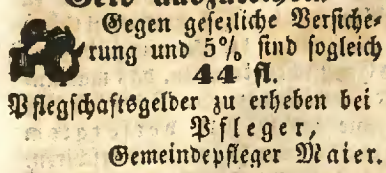 Geld auszuleihen.
Gegen gesezliche Versiche⸗
rung und 5% sind sogleich
44 fl.
Pflegschaftsgelder zu erheben bei
Pfleger,
Gemeindepfleger Maier.